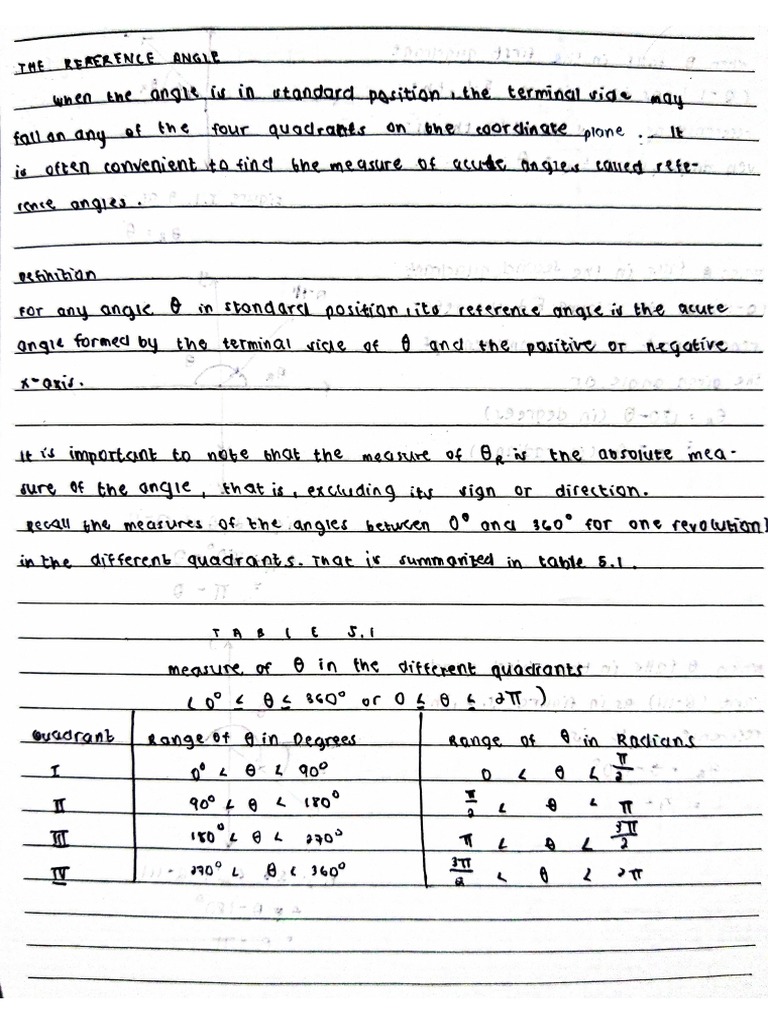 THE REFERENCE ANGLE
When the angle is in standard position, the terminal side may
fall on any of the four quadrants on the coordinate plone. It
is often convenient to find the measure of acute angles called refe-
rence angles.
Definition
For any angle θ in standard position, its reference angle is the acute
angle formed by the terminal side of θ and the positive or negative
x-axis.
It is important to note that the measure of θR is the absolute mea-
sure of the angle, that is, excluding its sign or direction.
Recall the measures of the angles between 0° and 360° for one revolution
in the different quadrants. That is summarized in table 5.1.
TABLE 5.1
measure of θ in the different quadrants
(0° < θ ≤ 360° or 0 ≤ θ ≤ 2π)
Quadrant Range of θ in Degrees Range of θ in Radians
I 0° < θ < 90° 0 < θ < π/2
II 90° < θ < 180° π/2 < θ < π
III 180° < θ < 270° π < θ < 3π/2
IV 270° < θ < 360° 3π/2 < θ < 2π